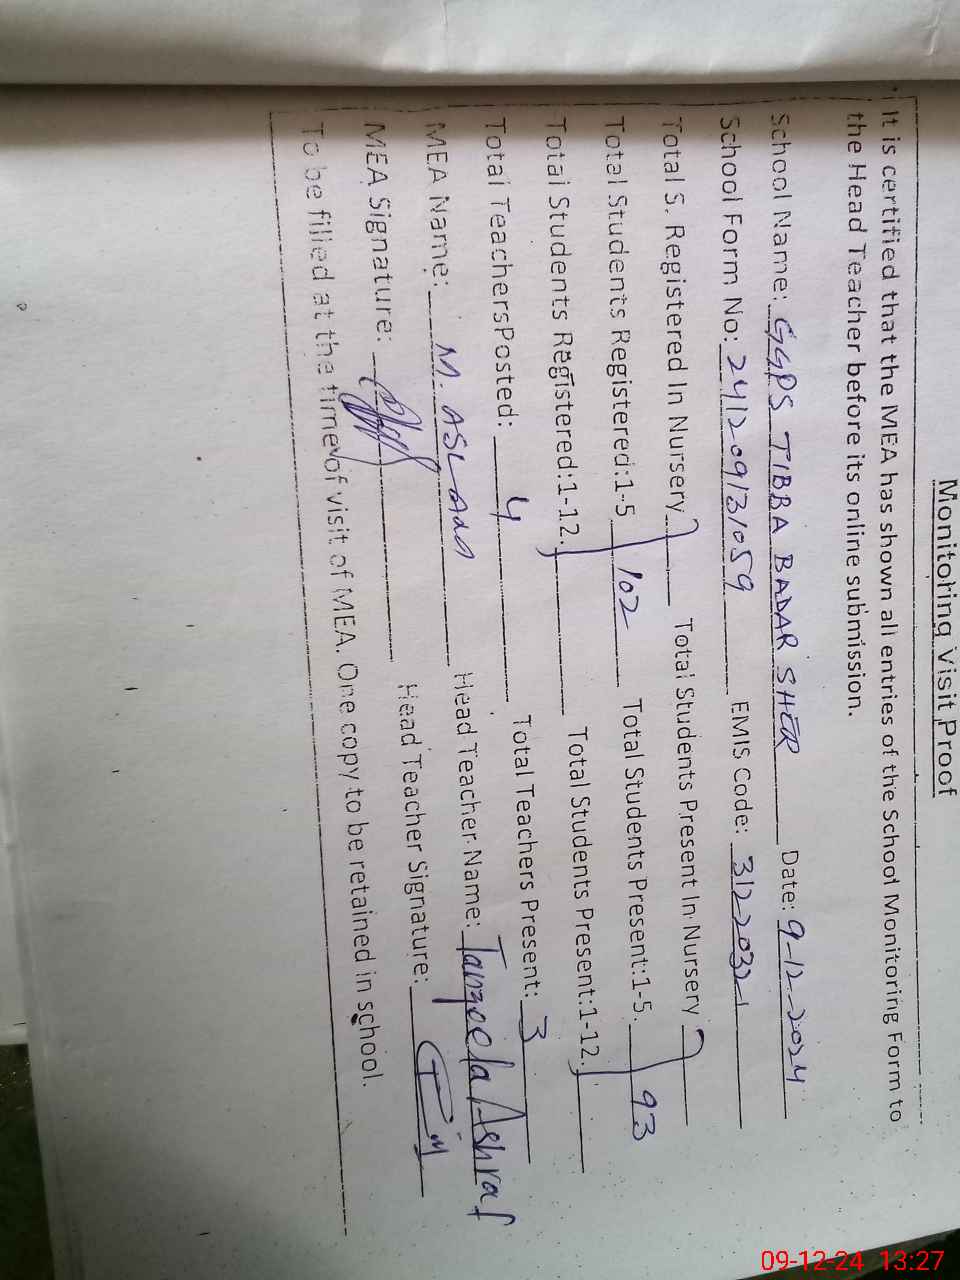 Monitoring Visit Proof
It is certified that the MEA has shown all entries of the School Monitoring Form to
the Head Teacher before its online submission.
School Name: GGPS TIBBA BADAR SHER Date: 9-12-2024
School Form No: 241209131059 EMIS Code: 31220321
Total S. Registered In Nursery Total Students Present In Nursery
Total Students Registered:1-5 102 Total Students Present:1-5 93
Total Students Registered:1-12. Total Students Present:1-12.
Total TeachersPosted: 4 Total Teachers Present: 3
MEA Name: M. ASLAM Head Teacher Name: Tanzeela Ashraf
MEA Signature: Head Teacher Signature:
To be filled at the time of visit of MEA. One copy to be retained in school.
09-12-24 13:27